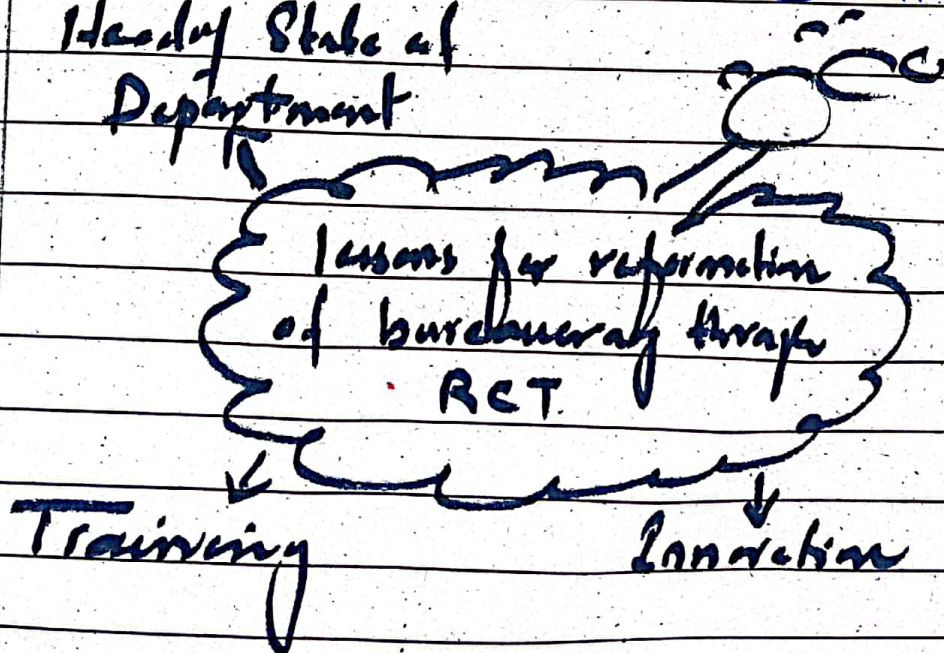 State of
Department
lessons for reformation
of bureaucracy through
RCT.
Training
Innovation